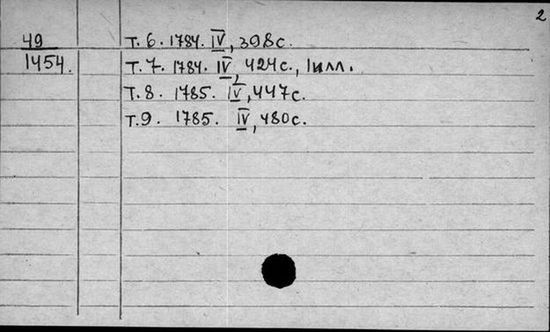 2
49 т. 6. 1784. IV, 398с.
1454. т. 7. 1784. IV, 424с., 1илл.
т. 8. 1785. IV, 447с.
т. 9. 1785. IV, 480с.